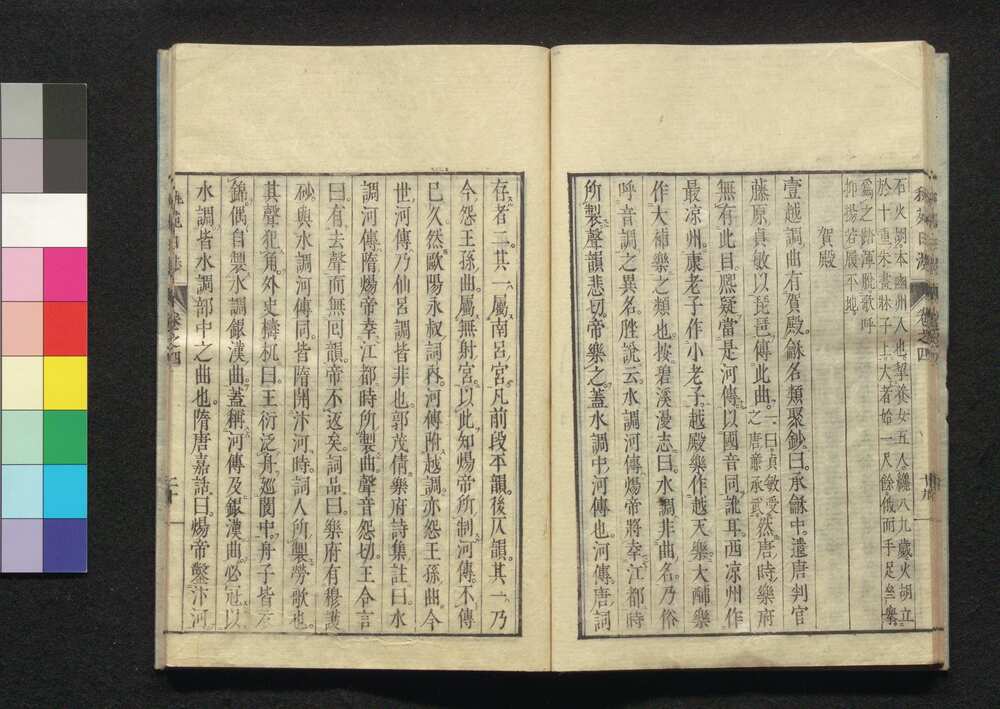 石火胡本幽州人也挈養女五人纔八九歲火胡立
於十重朱畫牀子上大者始一尺餘儀而手足並擧
爲之踏渾脫歌呼
抑揚若履平地
賀殿
壹越調曲有賀殿龢名類聚鈔曰承龢中遣唐判官
藤原貞敏以琵琶傳此曲一曰貞敏受之唐廉承武然唐時樂府
無有此目熈疑當是河傳以國音同訛耳西凉州作
最凉州康老子作小老子越殿樂作越天樂大酺樂
作大補樂之類也按碧溪漫志曰水調非曲名乃俗
呼音調之異名胜說云水調河傳煬帝將幸江都時
所製聲韻悲切帝樂之蓋水調中河傳也河傳唐詞
存者二其一屬南呂宮凡前段平韻後仄韻其一乃
今怨王孫曲屬無射宮以此知煬帝所制河傳不傳
已久然歐陽永叔詞內河傳附越調亦怨王孫曲今
世河傳乃仙呂調皆非也郭茂倩樂府詩集註曰水
調河傳隋煬帝幸江都時所製曲聲音怨切王令言
曰有去聲而無回韻帝不返矣詞品曰樂府有穆護
砂與水調河傳同皆隋開汴河時詞人所製勞歌也
其聲犯角外史檮杌曰王衍泛舟巡閬中舟子皆衣
錦偶自製水調銀漢曲蓋稱河傳及銀漢曲必冠以
水調皆水調部中之曲也隋唐嘉話曰煬帝鑿汴河
卷之四
二十